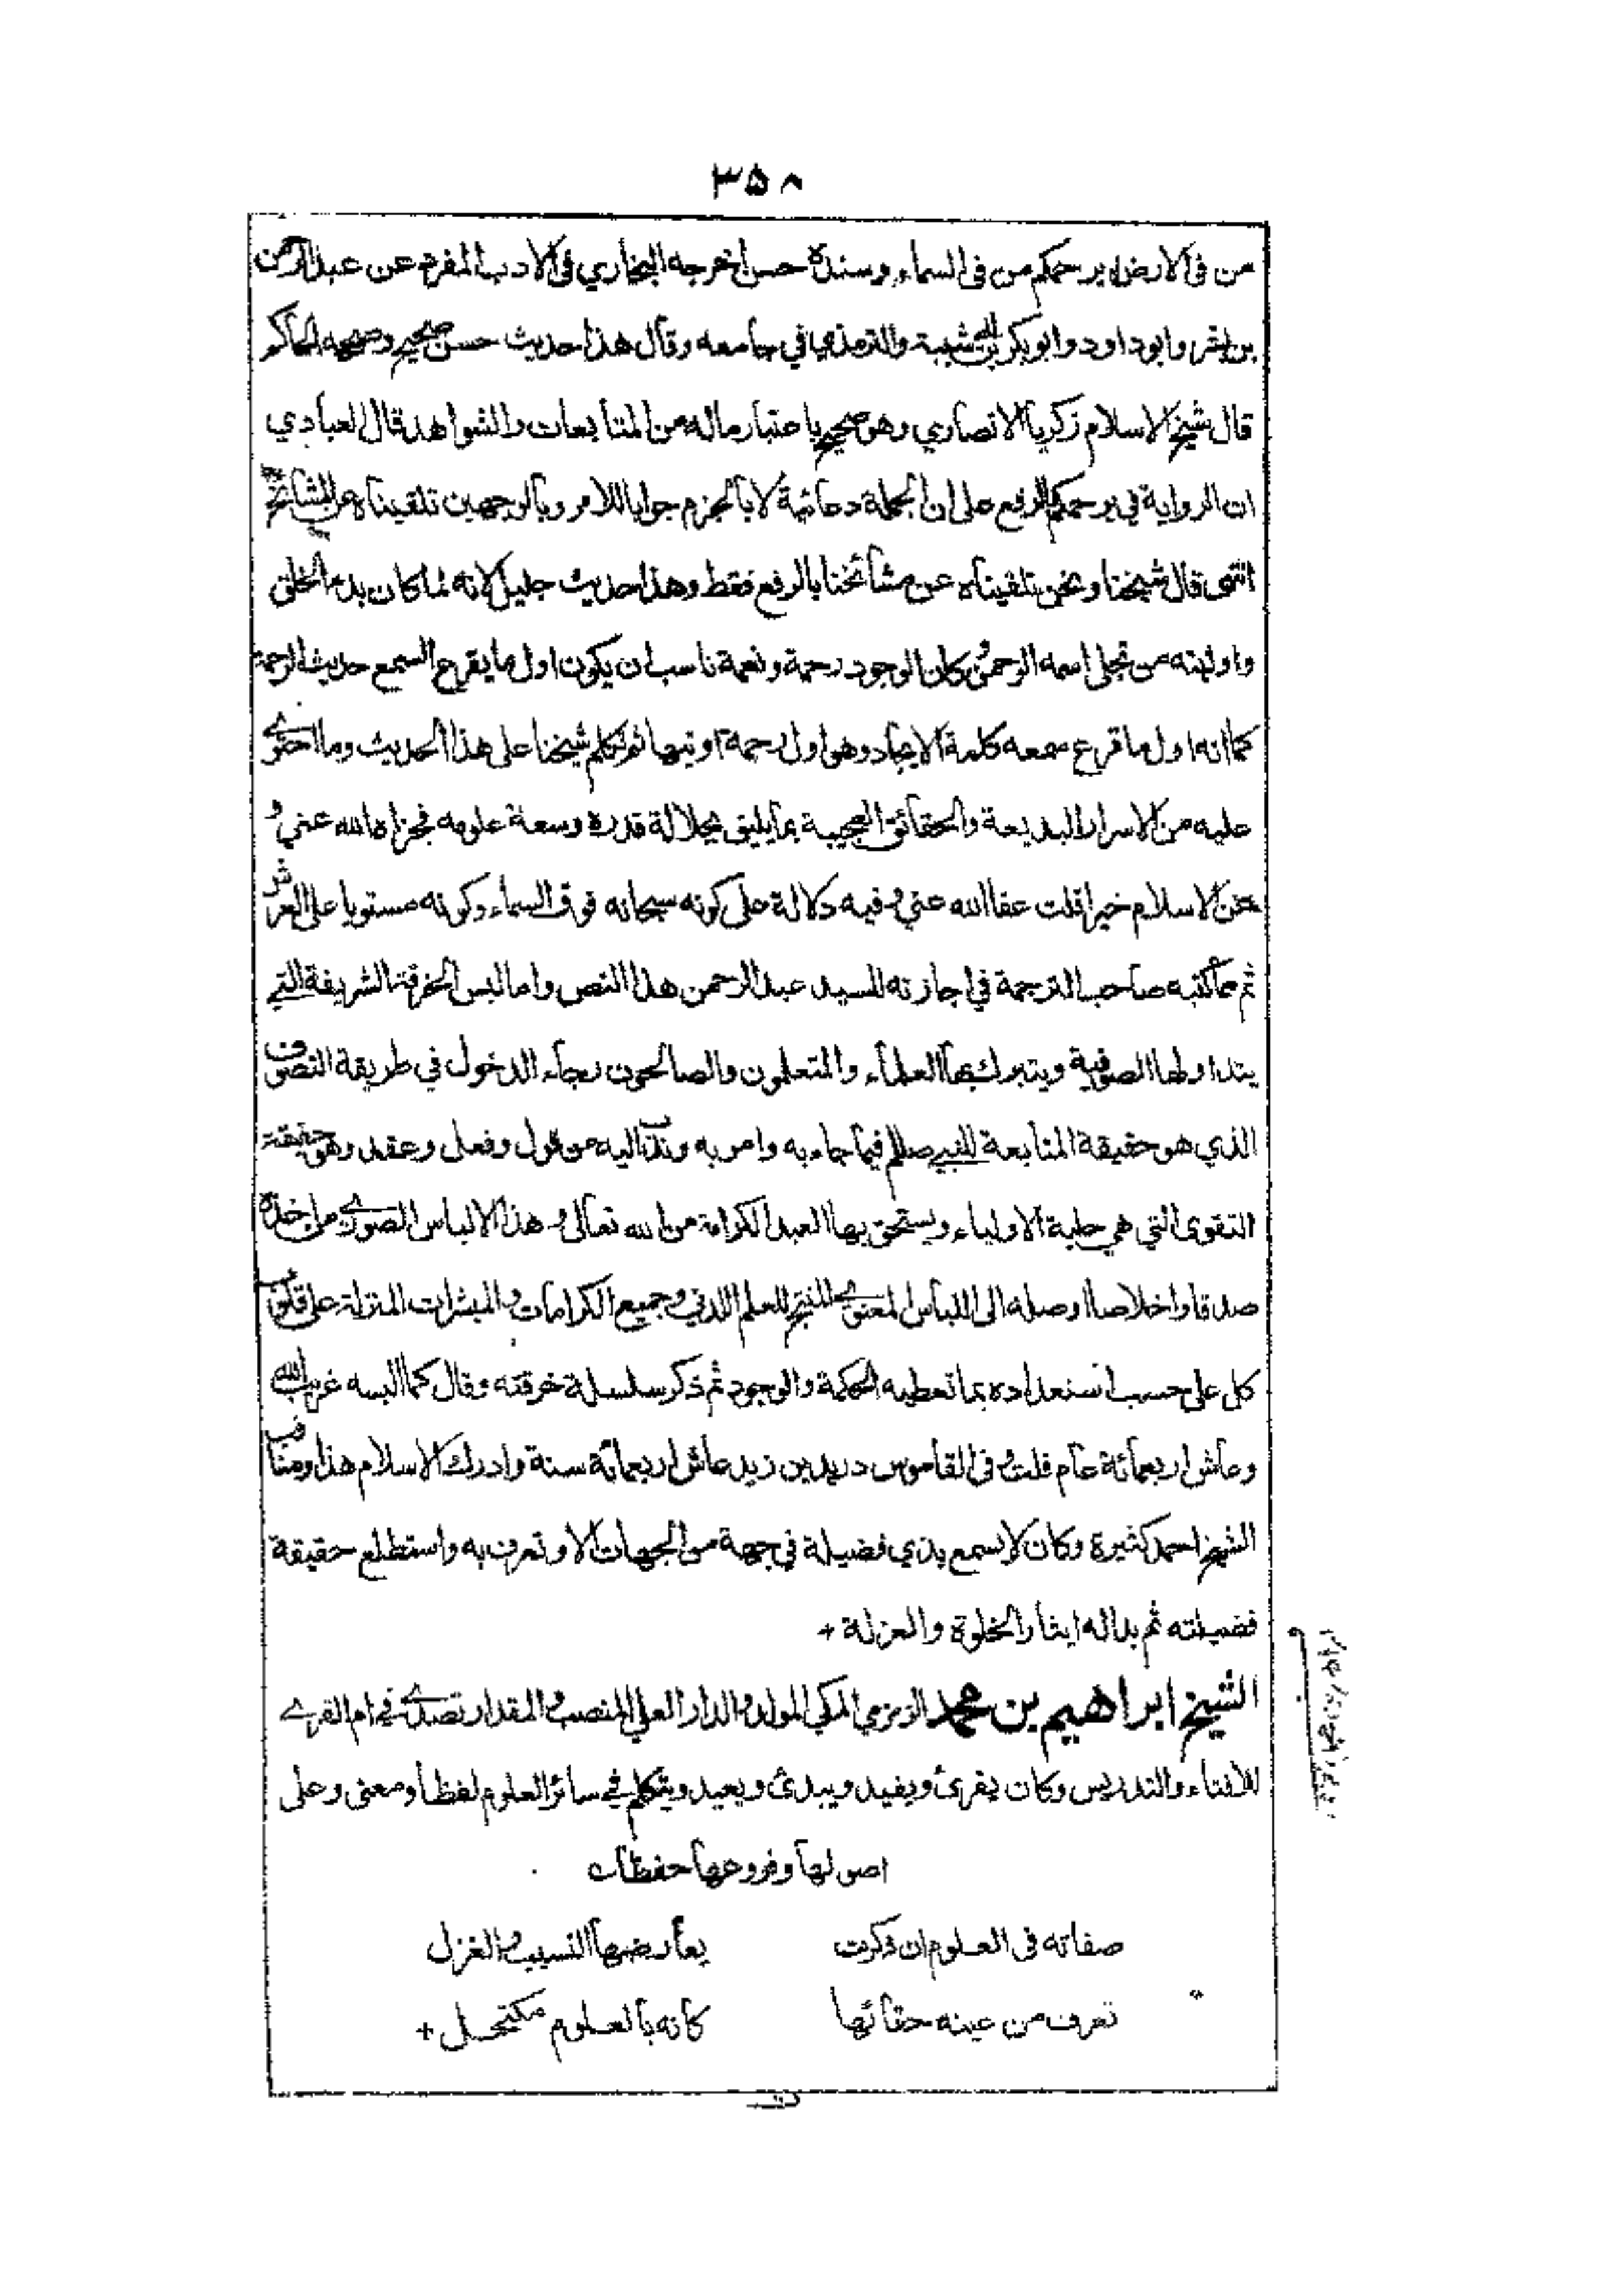 ۳۵۸
من فى الارض يرحمكم من فى السماء وسنده حسن اخرجه البخاري فى الادب المفرد عن عبد الرحمن
بن بشر وابوداود وابو بكر بن ابي شيبة والترمذي في جامعه وقال هذا حديث حسن صحيح وصححه الحاكم
قال شيخ الاسلام زكريا الانصاري وهو صحيح باعتبار ماله من المتابعات والشواهد قال العبادي
ان الرواية في يرحمكم بالرفع على ان الجملة دعائية لا بالجزم جوابا للامر وبالوجهين تلقيناه عن المشائخ
انتهى قال شيخنا ونحن تلقيناه عن مشائخنا بالرفع فقط وهذا حديث جليل لانه لما كان بدء الخلق
واوليته من تجلى اسمه الرحمن كان الوجود رحمة ونعمة ناسب ان يكون اول ما يقرع السمع حديث الرحمة
كما انه اول ما قرع سمعه كلمة الايجاد وهو اول رحمة اوتيها ثم تكلم شيخنا على هذا الحديث وما احتوى
عليه من الاسرار البديعة والحقائق العجيبة بما يليق بجلالة قدره وسعة علومه فجزاه الله عني و
عن الاسلام خيرا قلت عفا الله عني وفيه دلالة على كونه سبحانه فوق السماء وكونه مستويا على العرش
ثم مما كتبه صاحب الترجمة في اجازته للسيد عبد الرحمن هذا النص واما لبس الخرقة الشريفة التي
يتداولها الصوفية ويتبرك بها العلماء والمتعلمون والصالحون رجاء الدخول في طريقة التصوف
الذي هو حقيقة المتابعة للنبي صللم فيما جاء به وامر به وندب اليه من قول وفعل وعقد وهو حقيقة
التقوى التي هي حلية الاولياء ويستحق بها العبد الكرامة من الله تعالى وهذا الالباس الصوري من اخذه
صدقا واخلاصا اوصله الى اللباس المعنوي المنتج للعلم اللدني وجميع الكرامات والمبشرات المنزلة على قلب
كل على حسب استعداده بما تعطيه الحكمة والوجود ثم ذكر سلسلة خرقته وقال كما البسه غريب الله
وعاش اربعمائة عام قلت وفى القاموس دريد بن زيد عاش اربعمائة سنة وادرك الاسلام هذا ومناقب
الشيخ احمد كثيرة وكان لا يسمع بذي فضيلة في جهة من الجهات الا وتعرف به واستطلع حقيقة
فضيلته ثم بدا له ايثار الخلوة والعزلة +
الشيخ ابراهيم بن محمد الزمزمي المكي المولد والدار العلي المنصب والمقدار تصدى في ام القرى
للافتاء والتدريس وكان يقرئ ويفيد ويبدئ ويعيد ويتكلم في سائر العلوم لفظا ومعنى وعلى
اصولها وفروعها حفظات
صفاته فى العلوم ان ذكرت يعارضها النسيب والغزل
تعرف من عينه حقائقها كانه بالعلوم مكتحل +